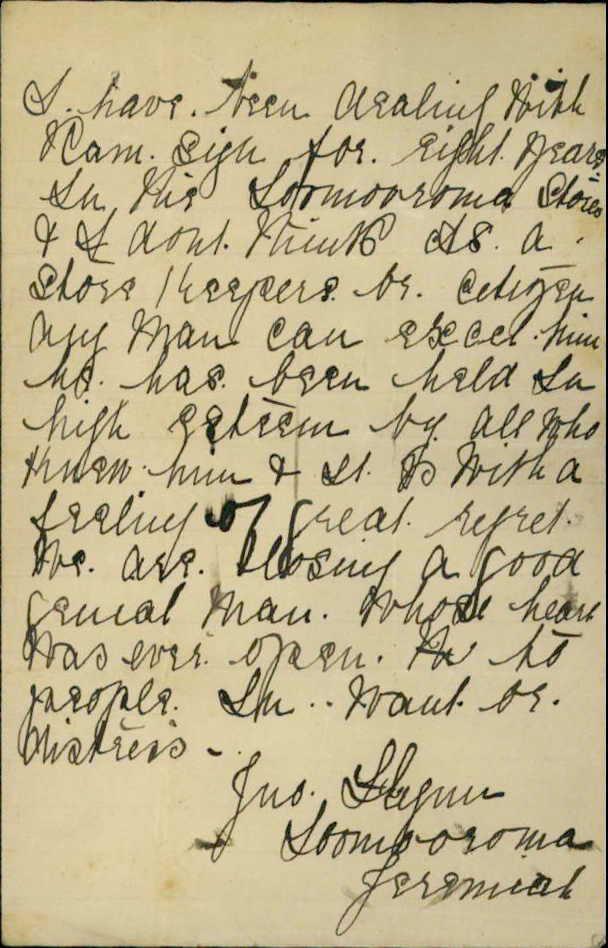 I. have. been dealing with
Ram. Sign for. eight years
In his Loomooroma Stores
& I dont. think As. a.
store Keepers. or. Citizen
any Man can excel. him
he. has. been held In
high esteem by. all who
knew. him & It. Is With a
feeling of great. regret.
We. are. loosing a good
genial Man. Whose heart
was ever. open. to
people. In.. want. or.
distress -
Jno.
Loomooroma
Jeremiah